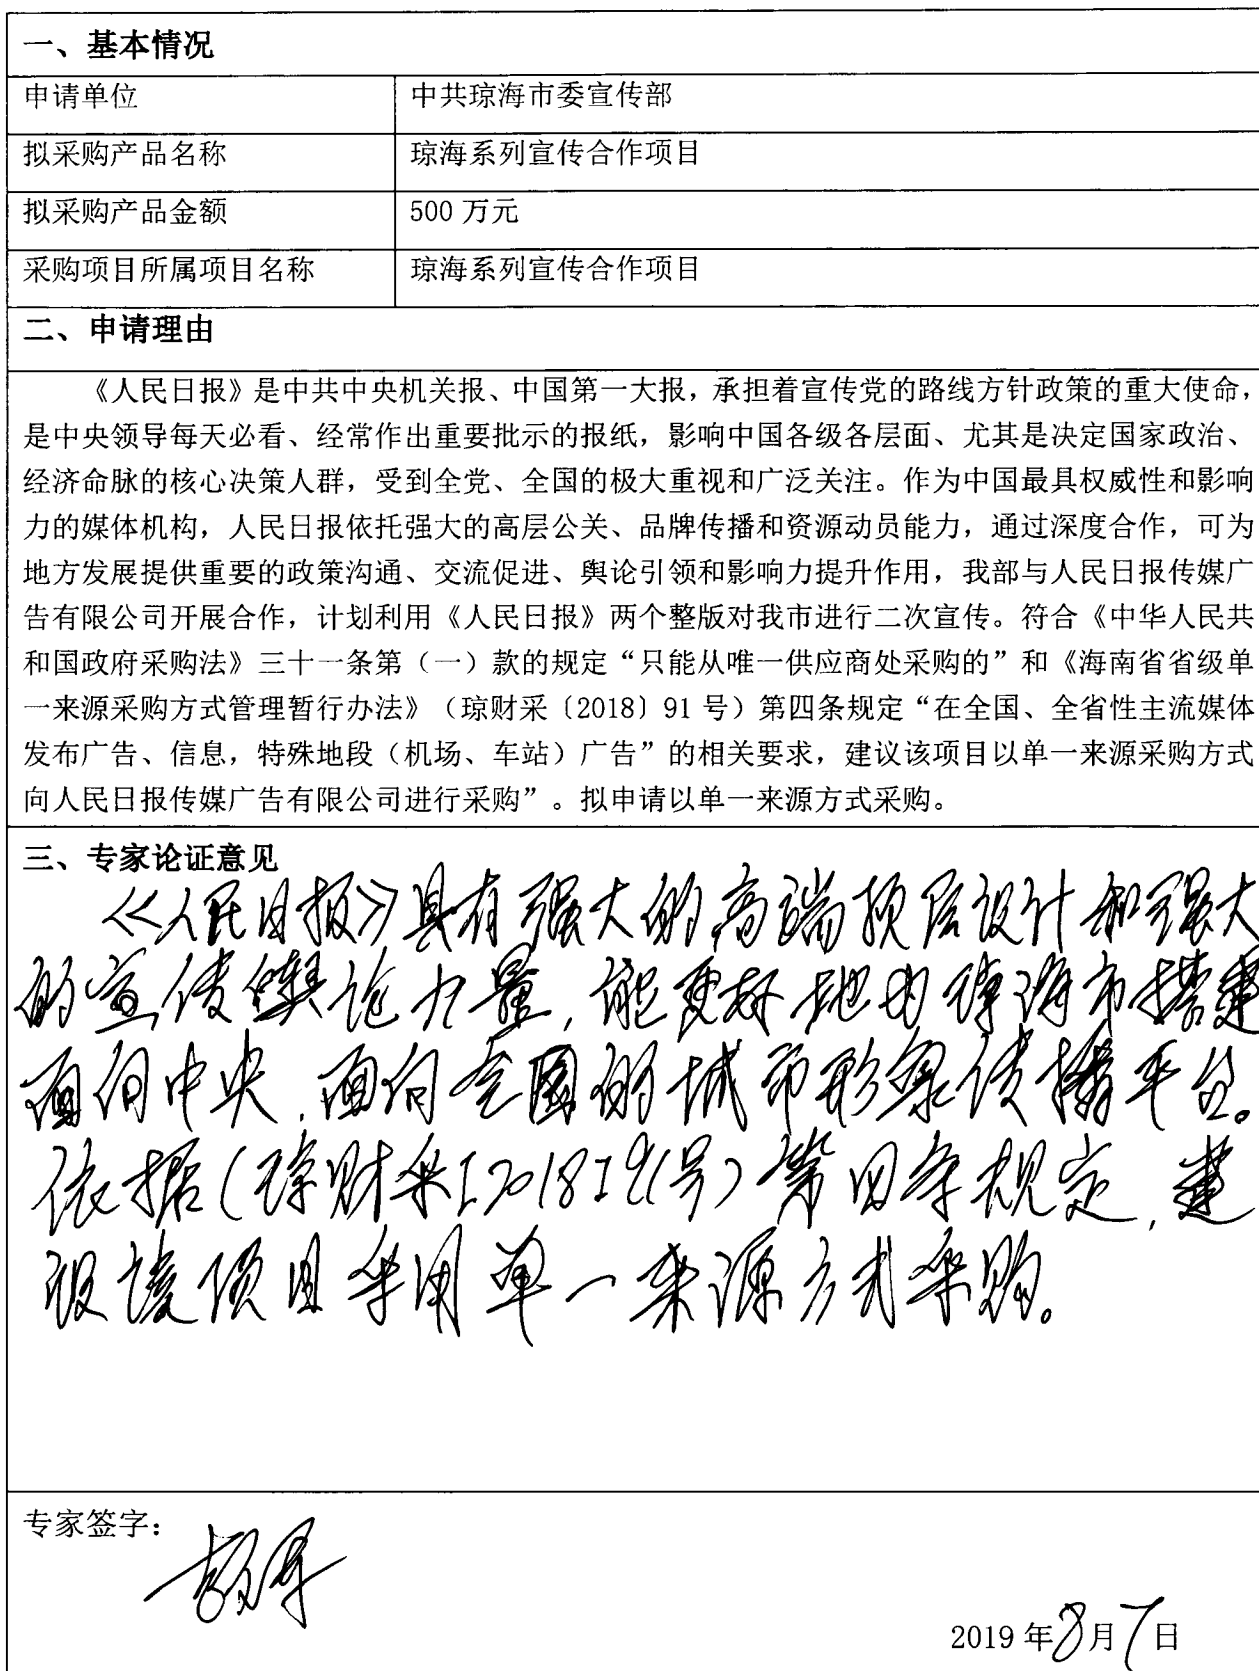 一、基本情况
申请单位 中共琼海市委宣传部
拟采购产品名称 琼海系列宣传合作项目
拟采购产品金额 500 万元
采购项目所属项目名称 琼海系列宣传合作项目
二、申请理由
《人民日报》是中共中央机关报、中国第一大报，承担着宣传党的路线方针政策的重大使命，
是中央领导每天必看、经常作出重要批示的报纸，影响中国各级各层面、尤其是决定国家政治、
经济命脉的核心决策人群，受到全党、全国的极大重视和广泛关注。作为中国最具权威性和影响
力的媒体机构，人民日报依托强大的高层公关、品牌传播和资源动员能力，通过深度合作，可为
地方发展提供重要的政策沟通、交流促进、舆论引领和影响力提升作用，我部与人民日报传媒广
告有限公司开展合作，计划利用《人民日报》两个整版对我市进行二次宣传。符合《中华人民共
和国政府采购法》三十一条第（一）款的规定“只能从唯一供应商处采购的”和《海南省省级单
一来源采购方式管理暂行办法》（琼财采〔2018〕91 号）第四条规定“在全国、全省性主流媒体
发布广告、信息，特殊地段（机场、车站）广告”的相关要求，建议该项目以单一来源采购方式
向人民日报传媒广告有限公司进行采购”。拟申请以单一来源方式采购。
三、专家论证意见
《人民日报》具有强大的高端顶层设计和强大
的宣传舆论力量，能更好地为琼海市搭建
面向中央，面向全国的城市形象传播平台。
依据（琼财采［2018］91号）第四条规定，建
议该项目采用单一来源方式采购。
专家签字：
2019 年 8 月 7 日